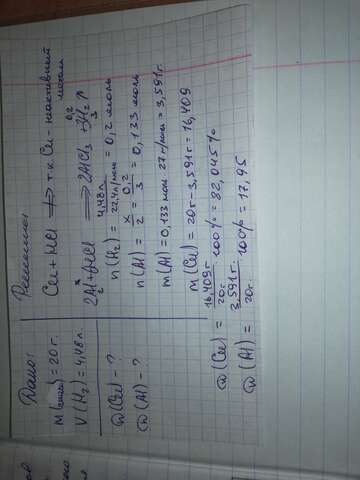 Дано:
m(смеси) = 20г.
V(H₂) = 4,48л.
ω(Cu) - ?
ω(Al) - ?
Решение:
Cu + HCl ⇏ т.к. Cu - неактивный
металл
x 0,2
2Al + 6HCl ⟹ 2AlCl₃ + 3H₂↑
2 3
n(H₂) = 4,48л / 22,4л/моль = 0,2 моль
n(Al) = x/2 = 0,2/3 = 0,133 моль
m(Al) = 0,133 моль · 27 г/моль = 3,591г.
m(Cu) = 20г - 3,591г = 16,409
ω(Cu) = 16,409г / 20г · 100% = 82,045%
ω(Al) = 3,591г. / 20г. · 100% = 17,95